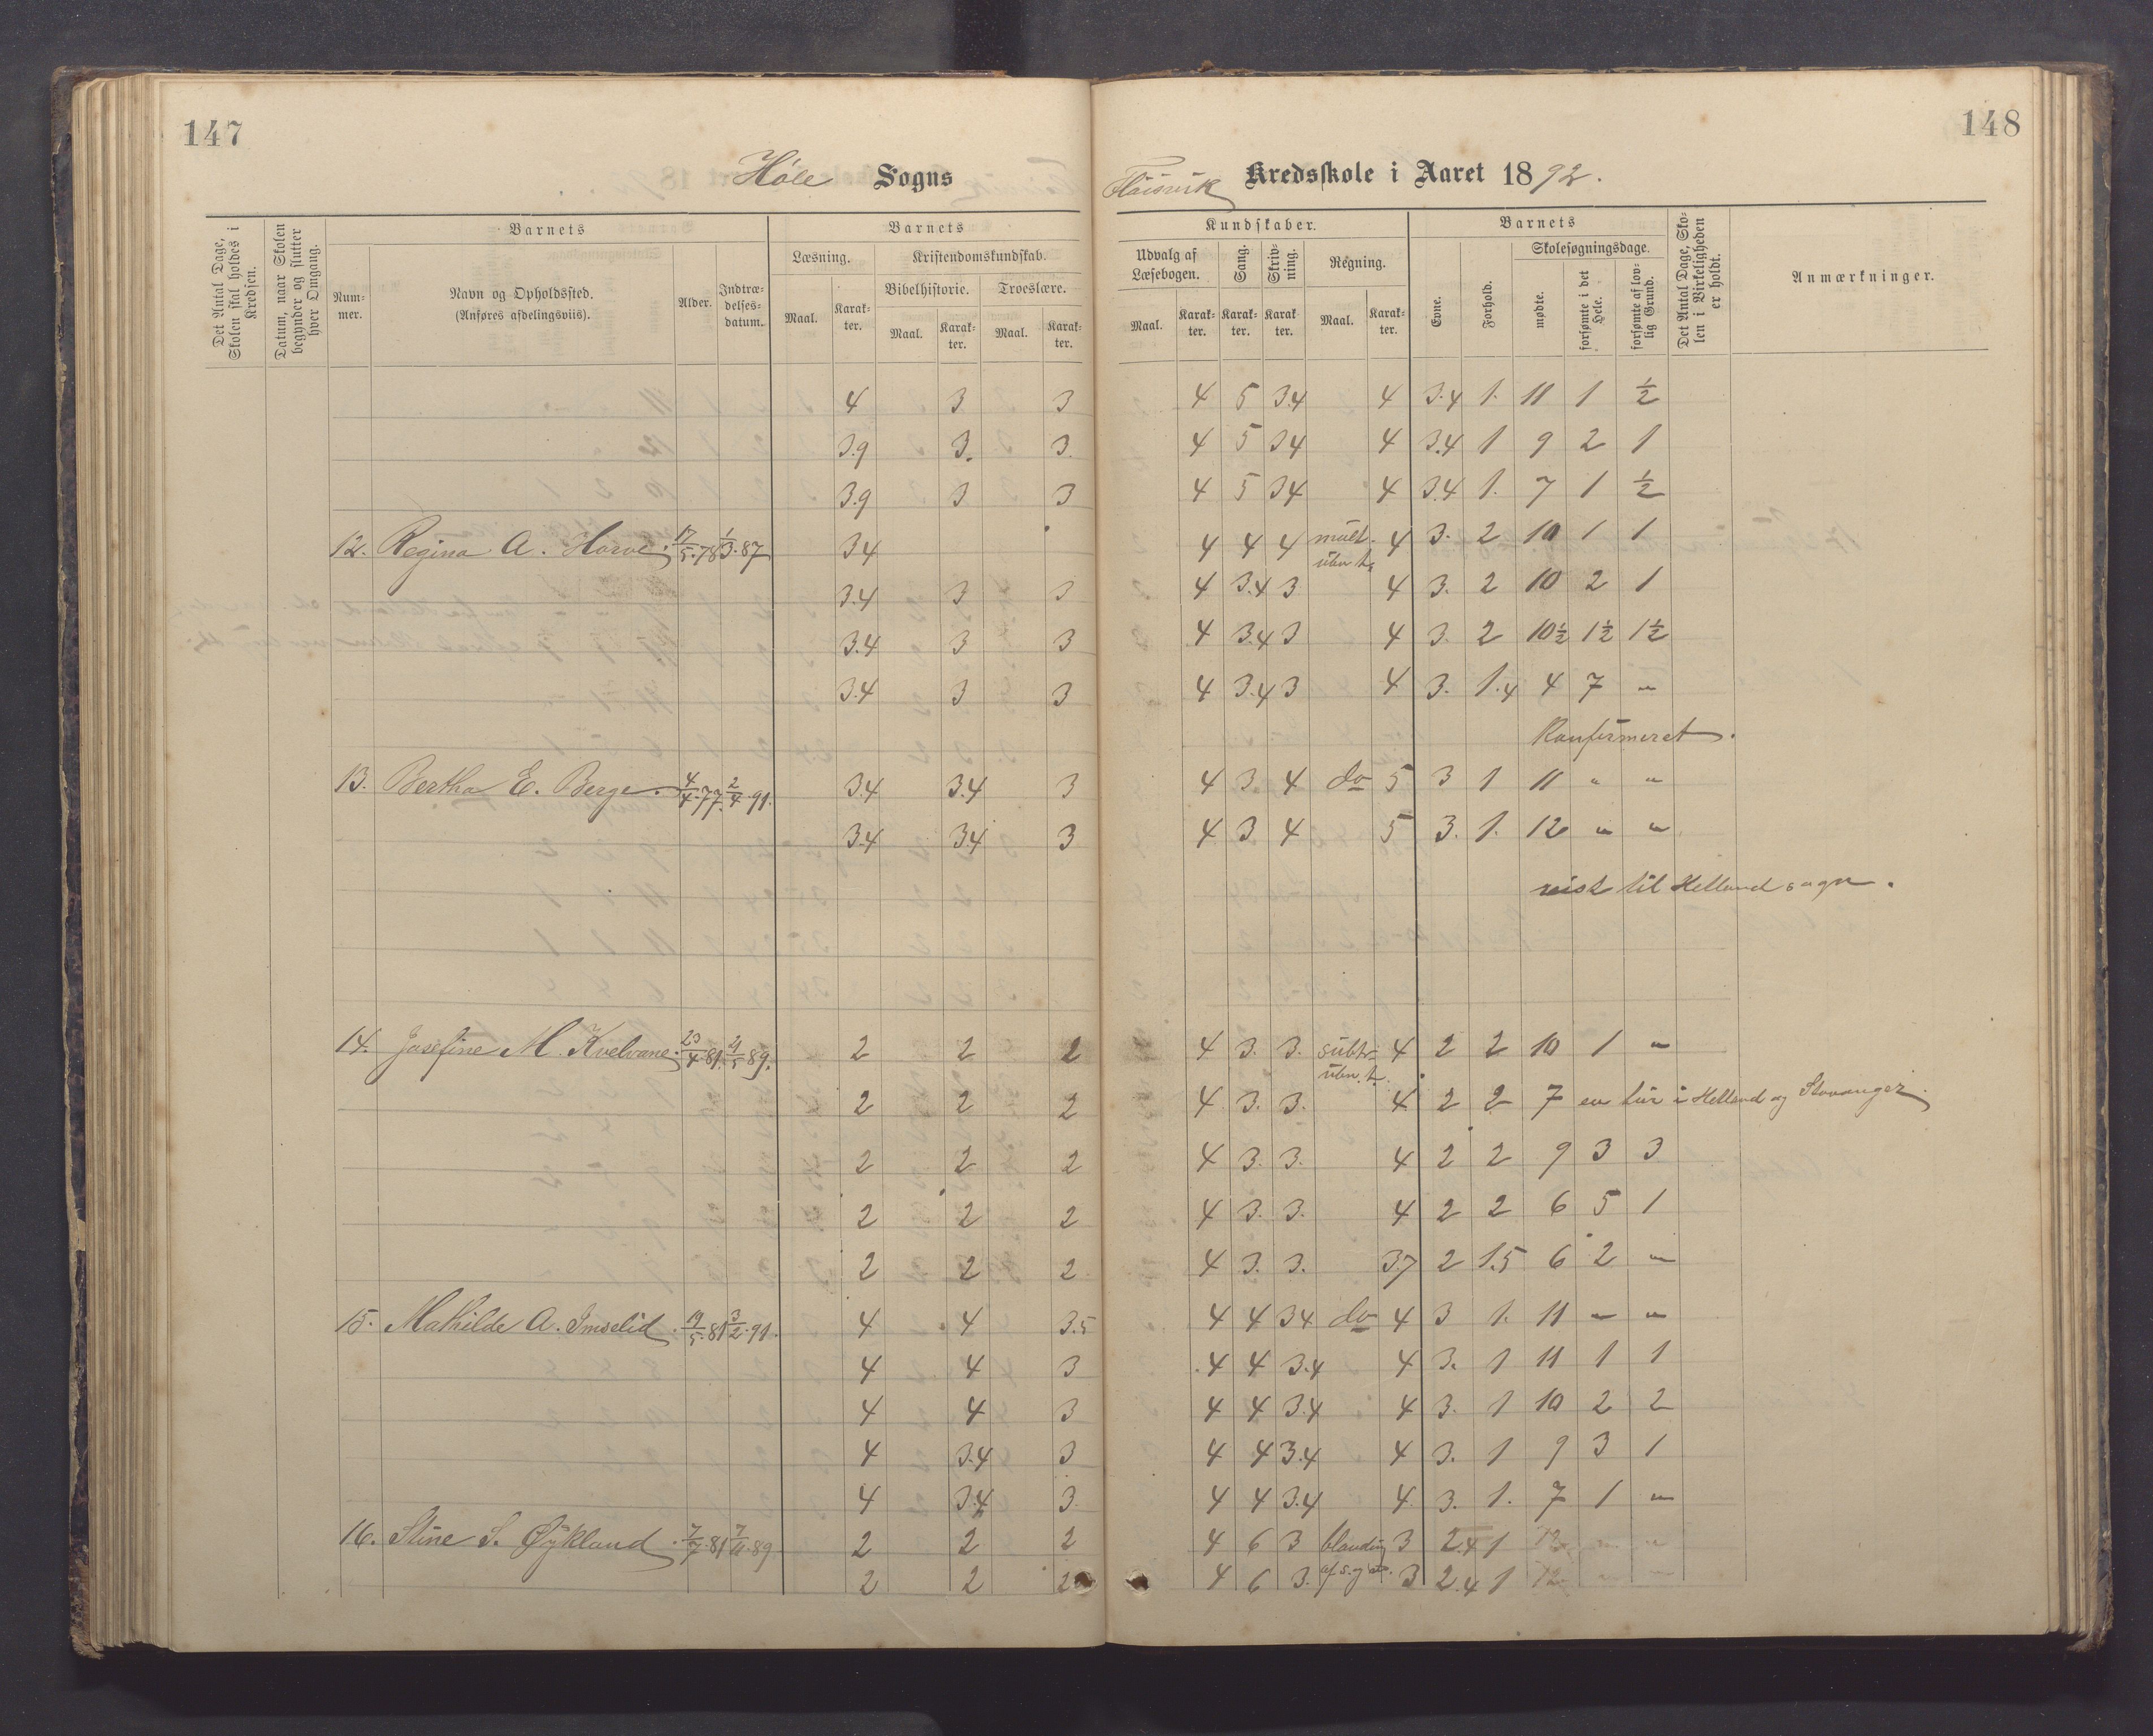 147
148
Høle Sogns
Kredsskole i Aaret 1892.
Det Antal Dage, Skolen skal holdes i Kredsen.
Datum, naar Skolen begynder og slutter hver Omgang.
Barnets
Nummer.
Navn og Opholdssted. (Anføres afdelingsviis).
Alder.
Indtrædelsesdatum.
Barnets
Læsning.
Kristendomskundskab.
Bibelhistorie.
Troeslære.
Maal. Karakter. Maal. Karakter. Maal. Karakter.
Kundskaber.
Udvalg af Læsebogen.
Sang.
Skrivning.
Regning.
Maal. Karakter. Karakter. Karakter. Maal. Karakter.
Barnets
Evne.
Forhold.
Skolesøgningsdage.
mødte.
forsømte i det Hele.
forsømte af lovlig Grund.
Det Antal Dage, Skolen i Virkeligheden er holdt.
Anmærkninger.
4 3 3 4 5 3.4 4 3.4 1. 11 1 ½
3.9 3. 3. 4 5 34 4 3.4 1 9 2 1
3.9 3 3 4 5 34 4 3.4 1. 7 1 ½
12. Regina A. Horve. 17/5.78 1/3.87 34 4 4 4 mult. 4 3. 2 10 1 1
3.4 3 3 4 3.4 3 4 3. 2 10 2 1
3.4 3 3 4 3.4 3 4 3. 2 10½ 1½ 1½
3.4 3 3 4 3.4 3 4 3. 1.4 4 7 "
Konfirmeret.
13. Bertha E. Berge. 4/4.77. 2/4.91. 3.4 3.4 3 4 3 4 do 5 3 1 11 " "
3.4 3.4 3 4 3 4 5 3. 1. 12 " "
reist til Helland sogn.
14. Josefine M. Kvelvane. 23/4.81. 21/5 89. 2 2 2 4 3. 3. subtr. 4 2 2 10 1 "
2 2 2 4 3. 3. 4 2 2 7 en tur i Helland og Stavanger.
2 2 2 4 3. 3. 4 2 2 9 3 3
2 2 2 4 3. 3. 4 2 2 6 5 1
2 2 2 4 3. 3. 3.7 2 1.5 6 2 "
15. Mathilde A. Imselid. 19/5.81 3/2.91. 4 4 3.5 4 4 34 do 4 3 1. 11 " "
4 4 3 4 4 3.4 4 3. 1 11 1 1
4 4 3 4 4 3.4 4 3. 1 10 2 2
4 3.4 3 4 4 3.4 4 3. 1 9 3 1
4 3.4 3. 4 4 3.4 4. 3. 1. 7 1 "
16. Stine S. Øykland. 7/7.81 7/11.89 2 2 2 4 6 3 blanding 3 2.4 1 12 " "
2 2 2 4 6 3. 3 2.4 1 12 " "